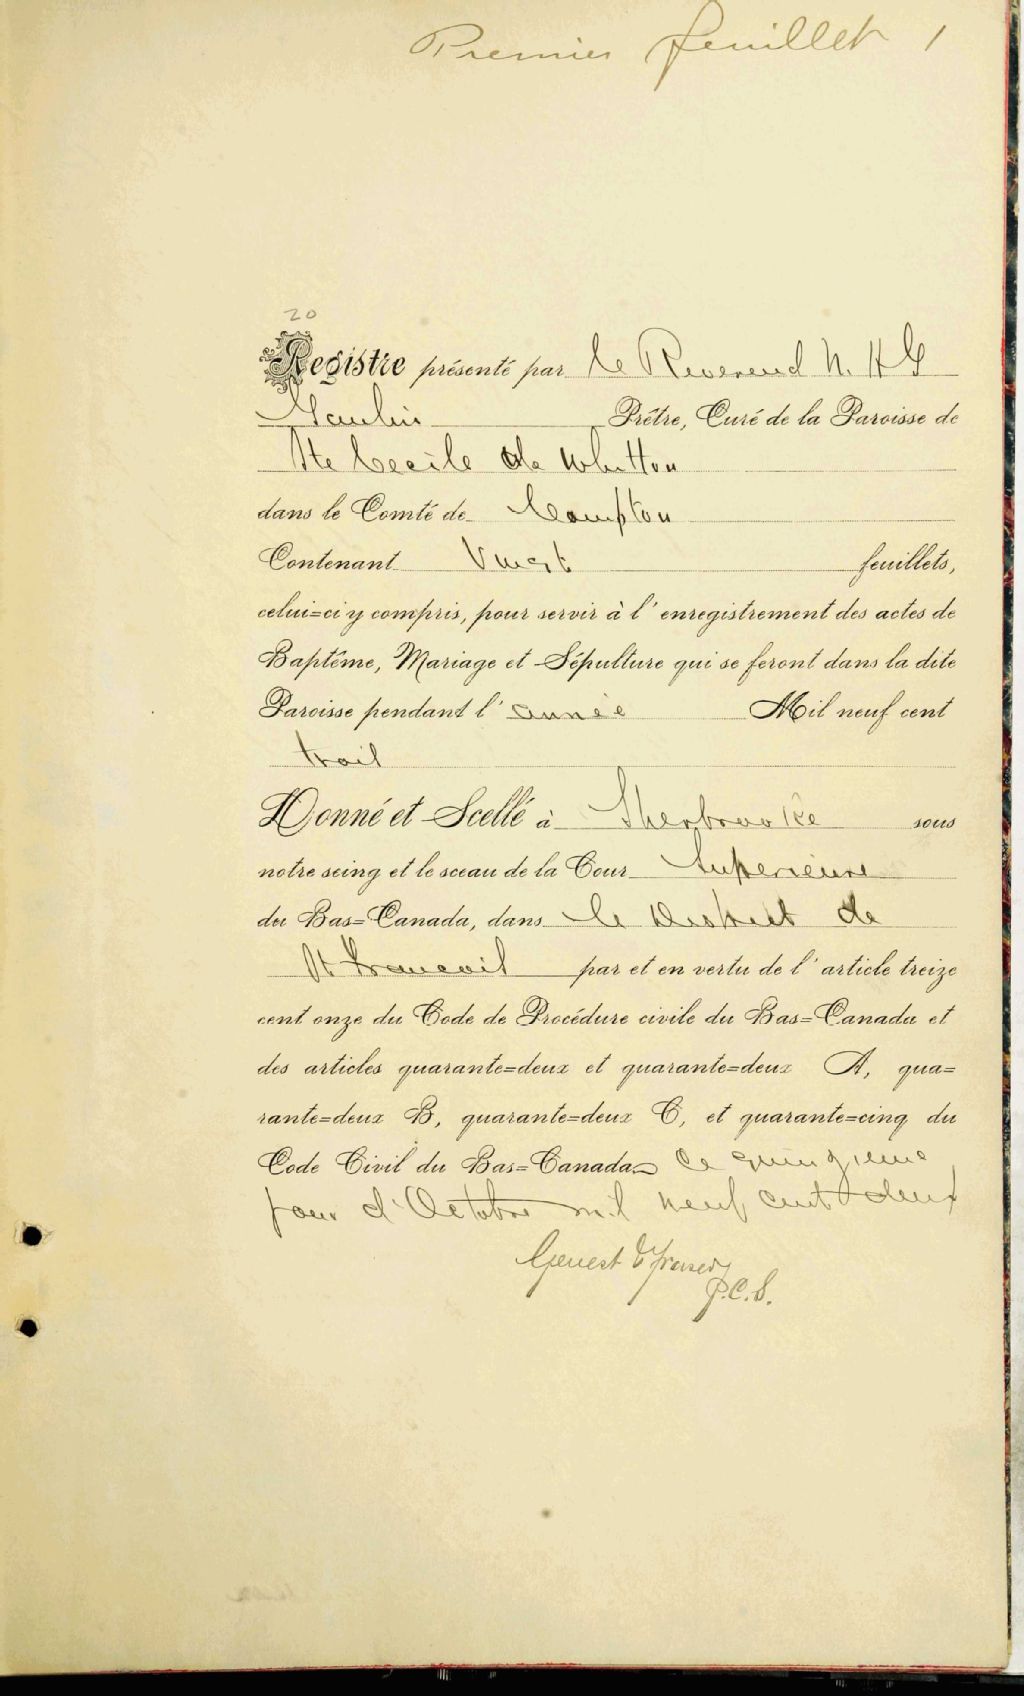 Premier feuillet 1
20
Registre présenté par le Reverend N. H. G
Gaulin Prêtre, Curé de la Paroisse de
Ste Cecile de Whitton
dans le Comté de Compton
Contenant Vingt feuillets,
celui=ci y compris, pour servir à l'enregistrement des actes de
Baptême, Mariage et Sépulture qui se feront dans la dite
Paroisse pendant l'année Mil neuf cent
trois
Donné et Scellé à Sherbrooke sous
notre seing et le sceau de la Cour Superieure
du Bas=Canada, dans le District de
St Francois par et en vertu de l'article treize
cent onze du Code de Procédure civile du Bas=Canada et
des articles quarante=deux et quarante=deux A, qua=
rante=deux B, quarante=deux C, et quarante=cinq du
Code Civil du Bas=Canada Ce quinzieme
jour d'Octobre mil neuf cent deux
Genest & Fraser
P.C.S.